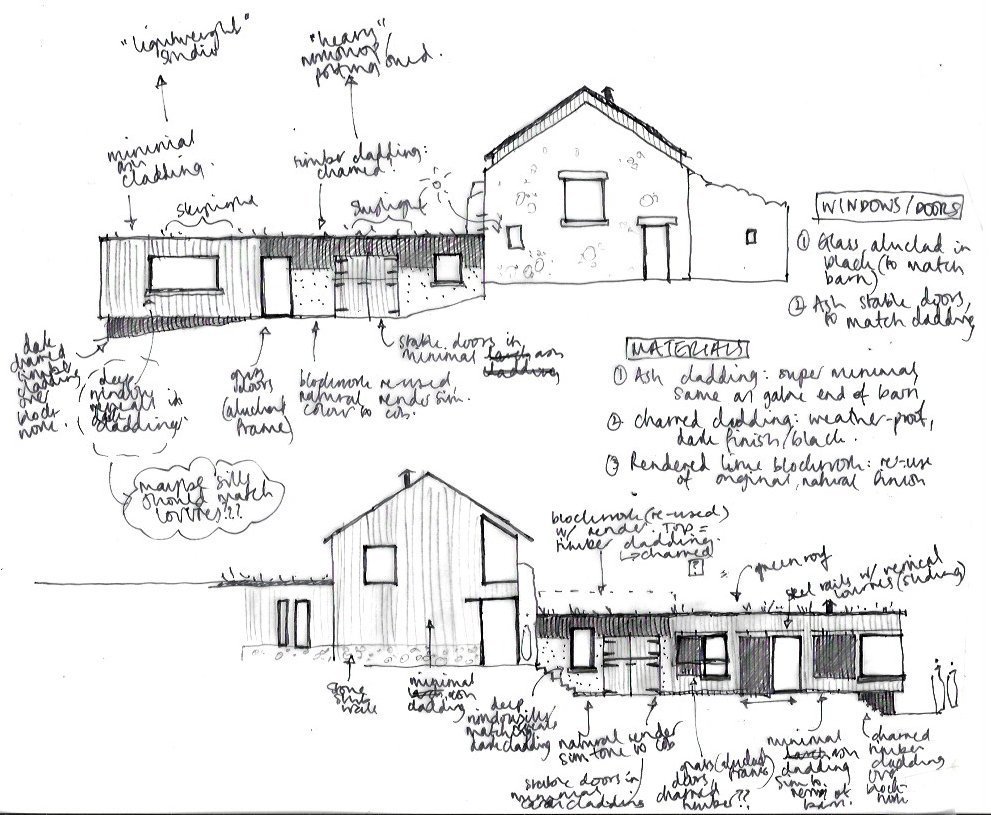 "lightweight"
studio
"heavy"
minimal
ash
cladding.
timber cladding:
charred.
skylight
skylight
WINDOWS/DOORS
① Glass, aluclad in
black (to match
barn)
② Ash stable doors,
to match cladding
MATERIALS
① Ash cladding: super minimal
same as gable end of barn
② charred cladding: weather-proof,
dark finish/black.
③ Rendered lime blockwork: re-use
of original, natural finish
dark
charred
timber
cladding
over
block
work.
deep
window
reveals in
dark
cladding.
glass
doors
(aluclad
frame)
blockwork re-used
natural render sim.
colour to cob.
stable doors in
minimal larch ash
cladding
maybe sills
should match
louvres??
blockwork (re-used)
w/ render. TOP =
timber cladding.
↳ charred
?
green roof
steel rails w/ vertical
louvres (sliding)
stone
minimal
larch ash
cladding
deep
window sills/
matching
dark cladding
natural render
sim tone to cob
stable doors in
minimal
cladding
glass (aluclad
doors, frame)
charred
timber??
minimal
larch ash
cladding
sim to
of
barn.
charred
timber
cladding
over
block-
work